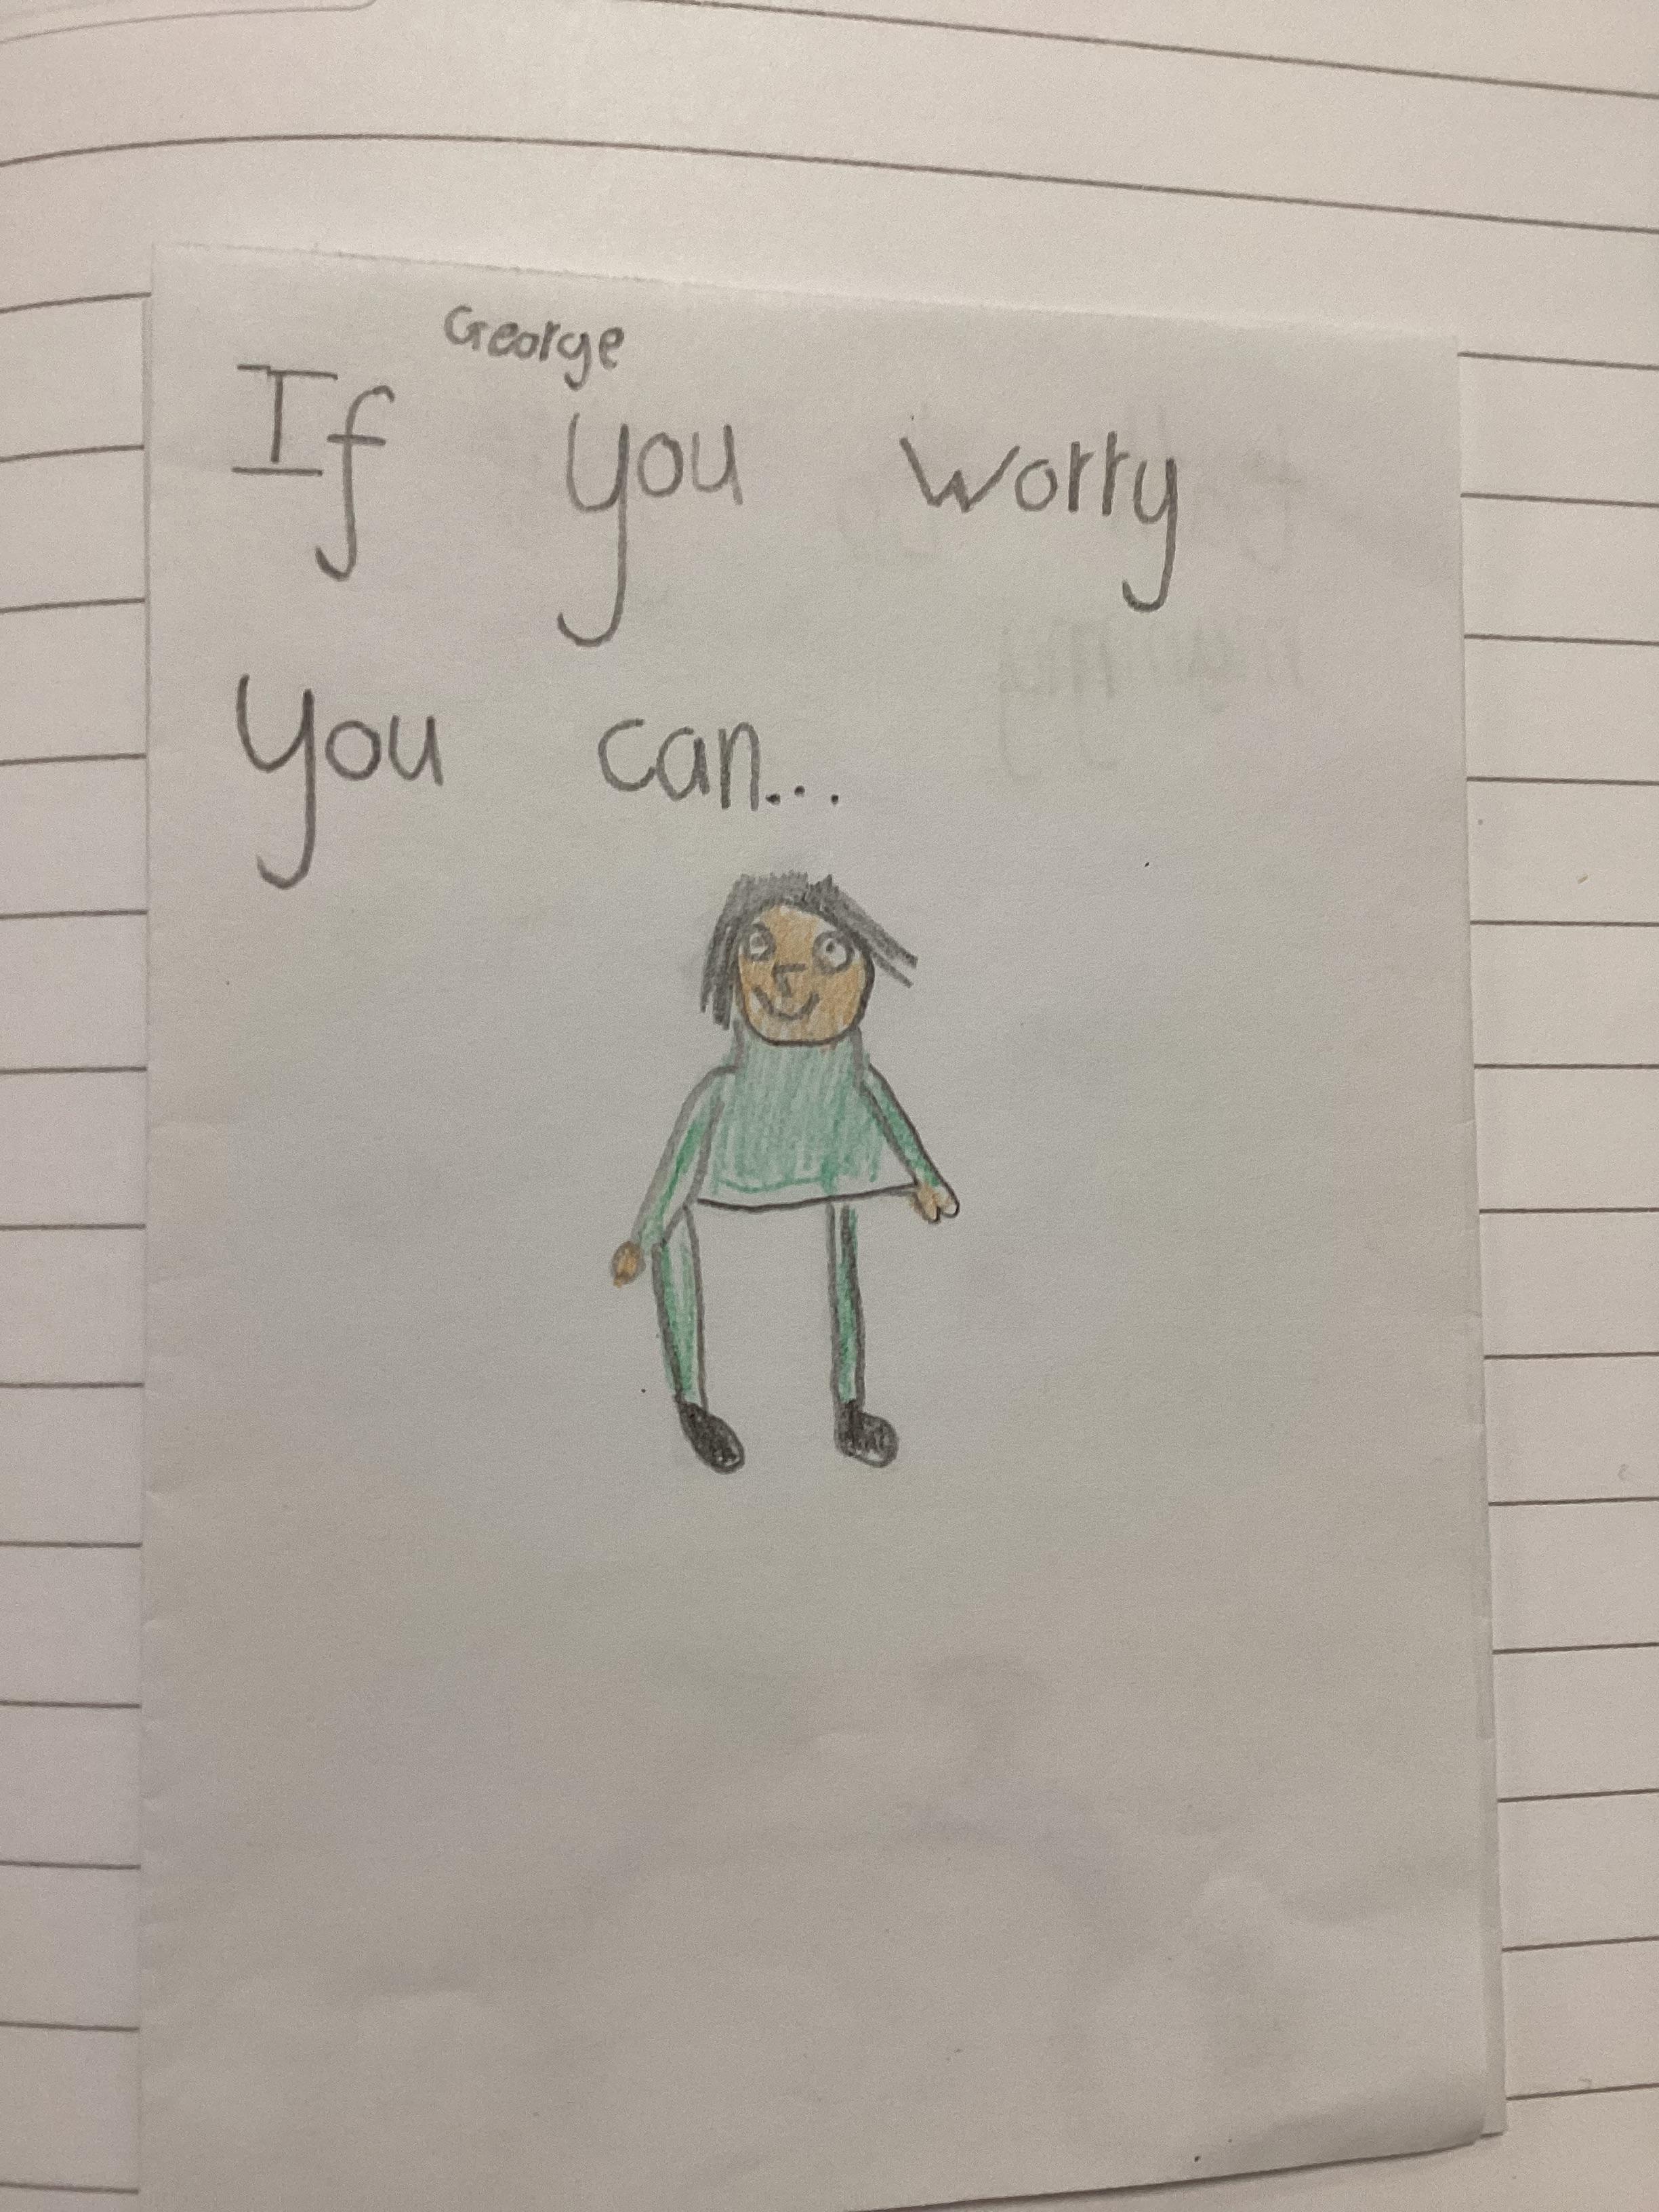 George
If you worry
you can...